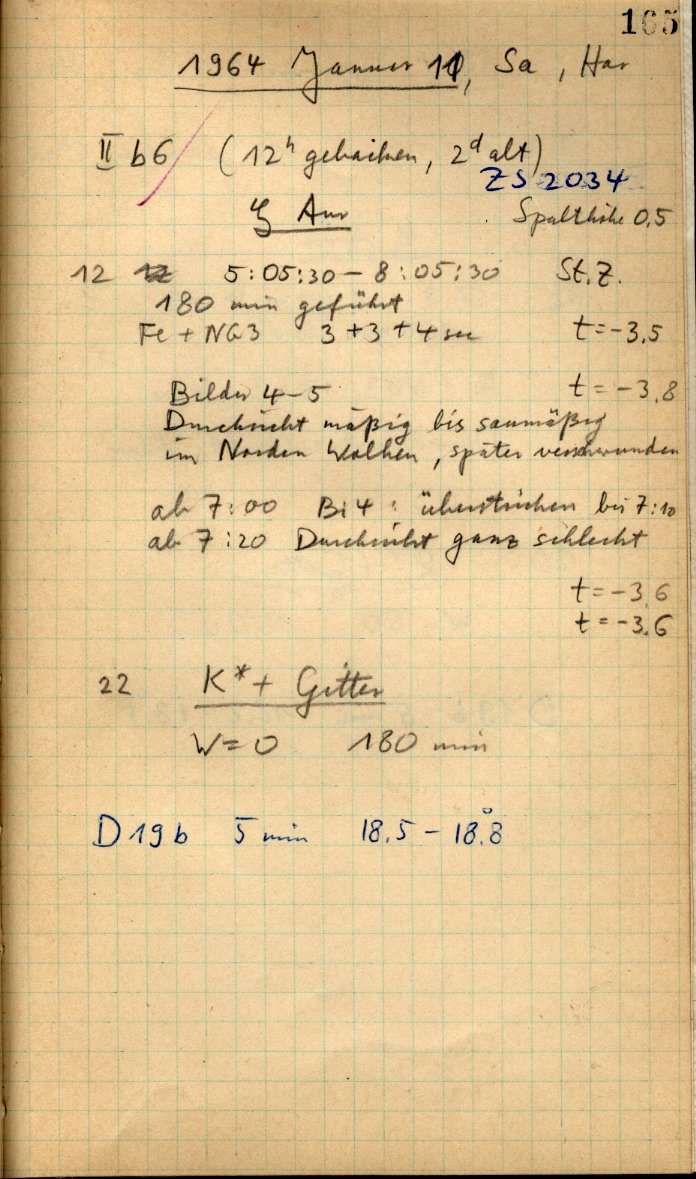 165
1964 Januar 11, Sa, Har
II b6 (12h gebacken, 2d alt)
ZS 2034
ζ Aur Spalthöhe 0,5
12 5:05:30 – 8:05:30 St.Z.
180 min geführt
Fe + NG3 3+3+4 sec t=-3,5
Bilder 4-5 t=-3,8
Durchsicht mäßig bis saumäßig
im Norden Wolken, später verschwunden
ab 7:00 Bi 4: überstrichen bis 7:10
ab 7:20 Durchsicht ganz schlecht
t=-3,6
t=-3,6
22 K*+ Gitter
W=0 180 min
D19b 5 min 18,5 – 18,8°